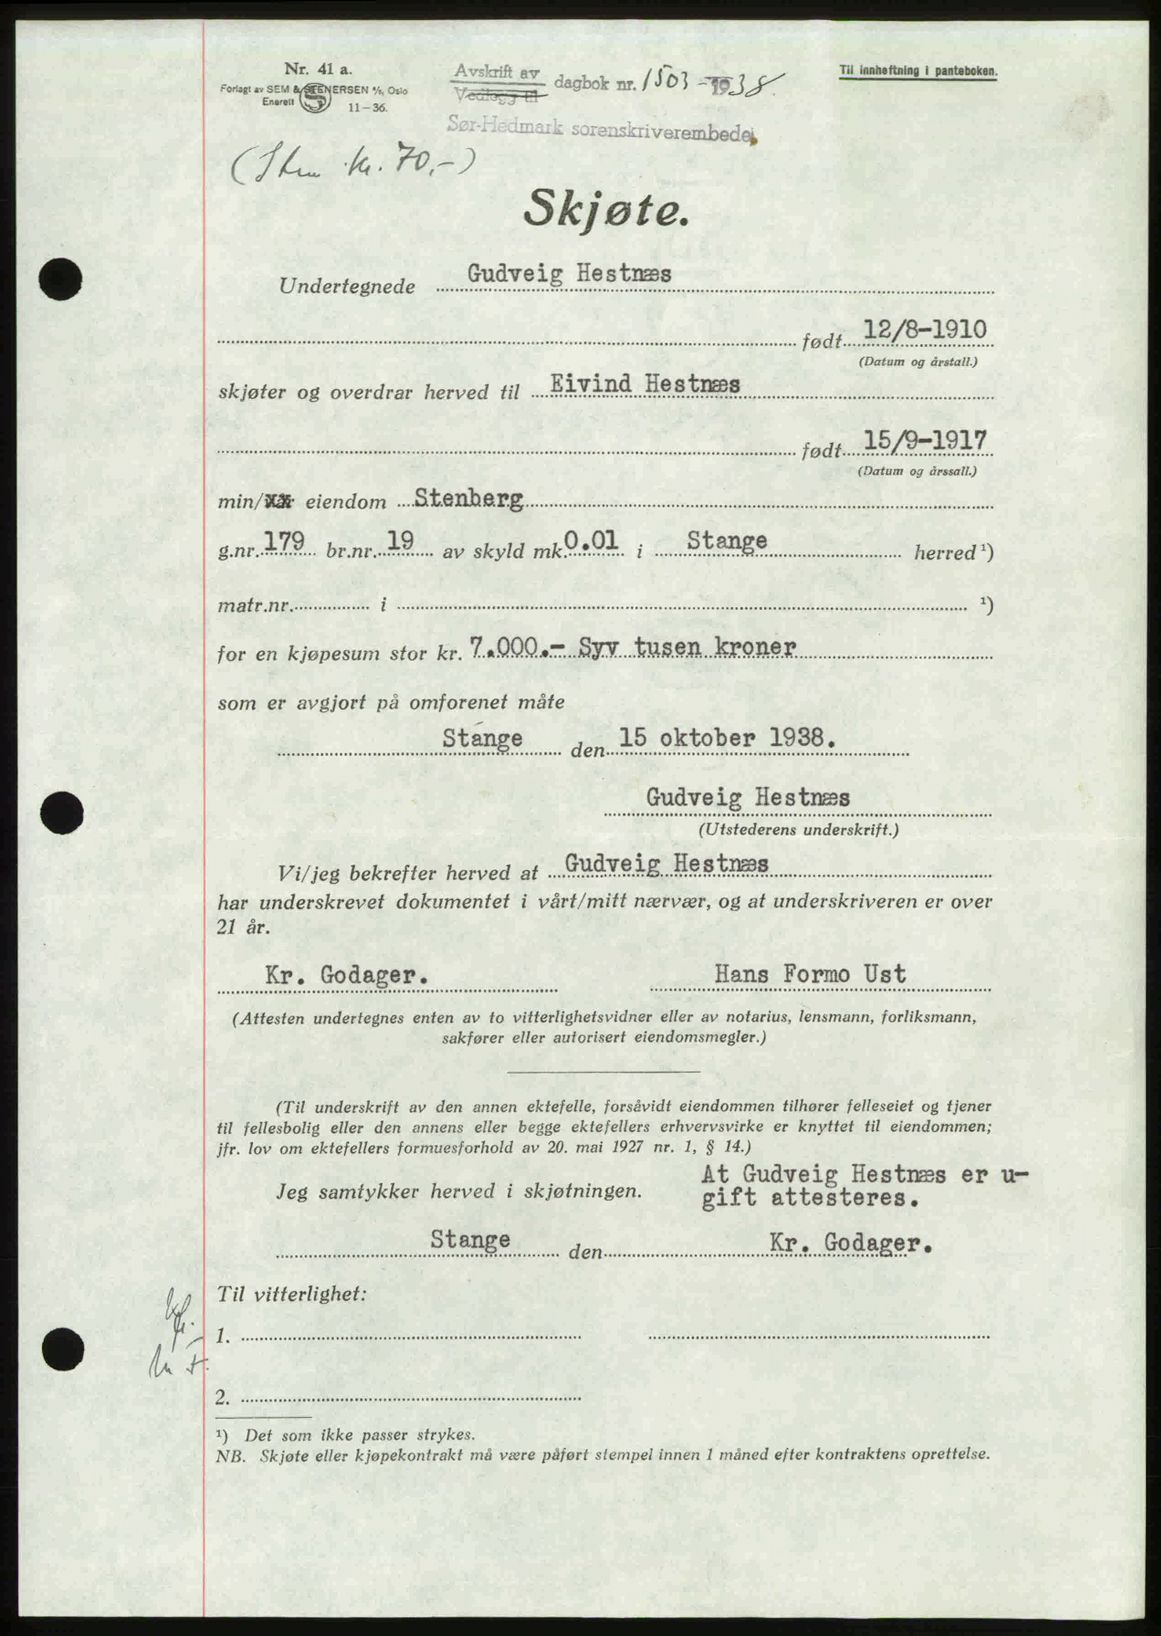 Nr. 41 a.
Forlagt av SEM & STENERSEN A/S, Oslo
Enerett 11-36.
Avskrift av
Vedlegg til
dagbok nr. 1503 - 1938.
Sør-Hedmark sorenskriverembede
Til innheftning i panteboken.
(Stem kr. 70,-)
Skjøte.
Undertegnede Gudveig Hestnæs
født 12/8-1910
(Datum og årstall.)
skjøter og overdrar herved til Eivind Hestnæs
født 15/9-1917
(Datum og årssall.)
min/ eiendom Stenberg
g.nr. 179 br.nr. 19 av skyld mk. 0.01 i Stange herred ¹)
matr.nr. i ¹)
for en kjøpesum stor kr. 7.000.- Syv tusen kroner
som er avgjort på omforenet måte
Stange den 15 oktober 1938.
Gudveig Hestnæs
(Utstederens underskrift.)
Vi/jeg bekrefter herved at Gudveig Hestnæs
har underskrevet dokumentet i vårt/mitt nærvær, og at underskriveren er over
21 år.
Kr. Godager. Hans Formo Ust
(Attesten undertegnes enten av to vitterlighetsvidner eller av notarius, lensmann, forliksmann,
sakfører eller autorisert eiendomsmegler.)
(Til underskrift av den annen ektefelle, forsåvidt eiendommen tilhører felleseiet og tjener
til fellesbolig eller den annens eller begge ektefellers erhvervsvirke er knyttet til eiendommen;
jfr. lov om ektefellers formuesforhold av 20. mai 1927 nr. 1, § 14.)
Jeg samtykker herved i skjøtningen.
At Gudveig Hestnæs er u-
gift attesteres.
Stange den Kr. Godager.
Til vitterlighet:
1.
2.
¹) Det som ikke passer strykes.
NB. Skjøte eller kjøpekontrakt må være påført stempel innen 1 måned efter kontraktens oprettelse.